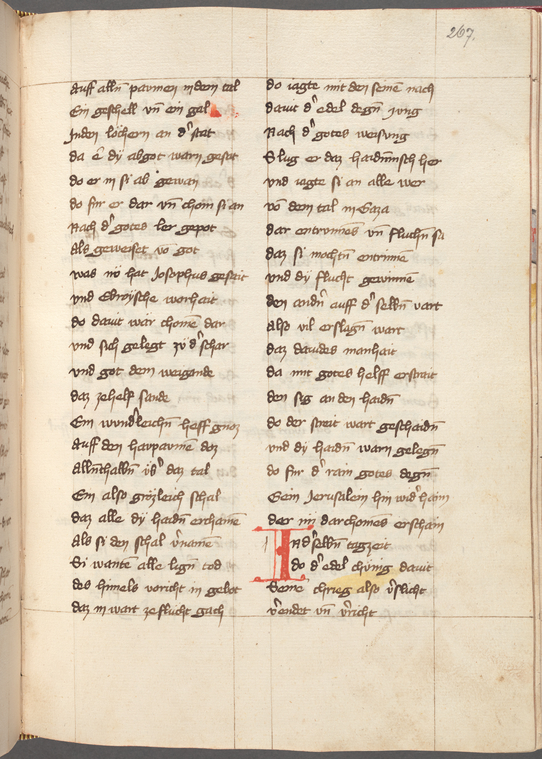 267.
Auff alln pawmen in dem tal
Ein geschell vn̄ ein gal
In den löchern an d' stat
da ē dÿ abgot warn gesat
do er in si ab gewan
do fur er dar vn̄ chom si an
Nach d' gotes ler gepot
Als geweiset vō got
was nv̄ hat Josephus geseit
vnd Ebroÿsche worhait
do dauit war chomē dar
vnd sich gelegt zv̊ d' schar
vnd got dem weigande
daz ze helf sande
Ein wund'leichn̄ heff groz
Auff den pawmē doz
Allnthalbn̄ vb' daz tal
Ein also grözleich schal
daz alle dÿ haidn̄ erchamē
Als si den schal v'namē
Si wantē alle lign̄ tod
des himels voricht in gebot
daz in wart ze flucht gach
do iagte mit den seinē nach
dauit d' edel degn̄ Jung
Nach d' gotes weisung
Slug er daz haidnisch her
vnd iagte si an alle wer
vō dem tal in Gaza
dar entrunnēs vn̄ fluchn̄ sa
daz si mochtn̄ entrinnē
vnd dÿ flucht gewinnē
den andn̄ auff d' selbn̄ vart
Also vil erslagn̄ wart
daz dauides manhait
da mit gotes helff erstrait
den sig an den haidn̄
do der streit wart geschaidn̄
vnd dÿ haidn̄ warn gelegn̄
do fur d' rain gotes degn̄
Gein Jerusalem hin wid' haim
der im dar chomēs erschain
IN d' selbn̄ tagzeit
do d' edel chünig dauit
Seine chrieg also v'slicht
v'endet vn̄ v'richt